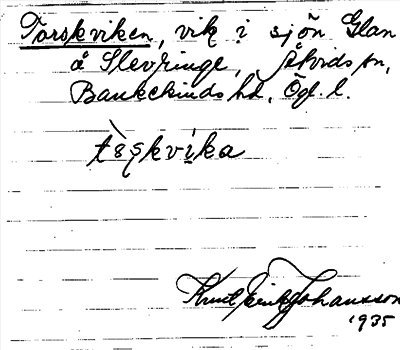 Torskviken, vik i sjön Glan
å Slevringe, Åtvids sn,
Bankekinds hd, Ög. l.
tɜskvika
Knut Erik Johansson
1935